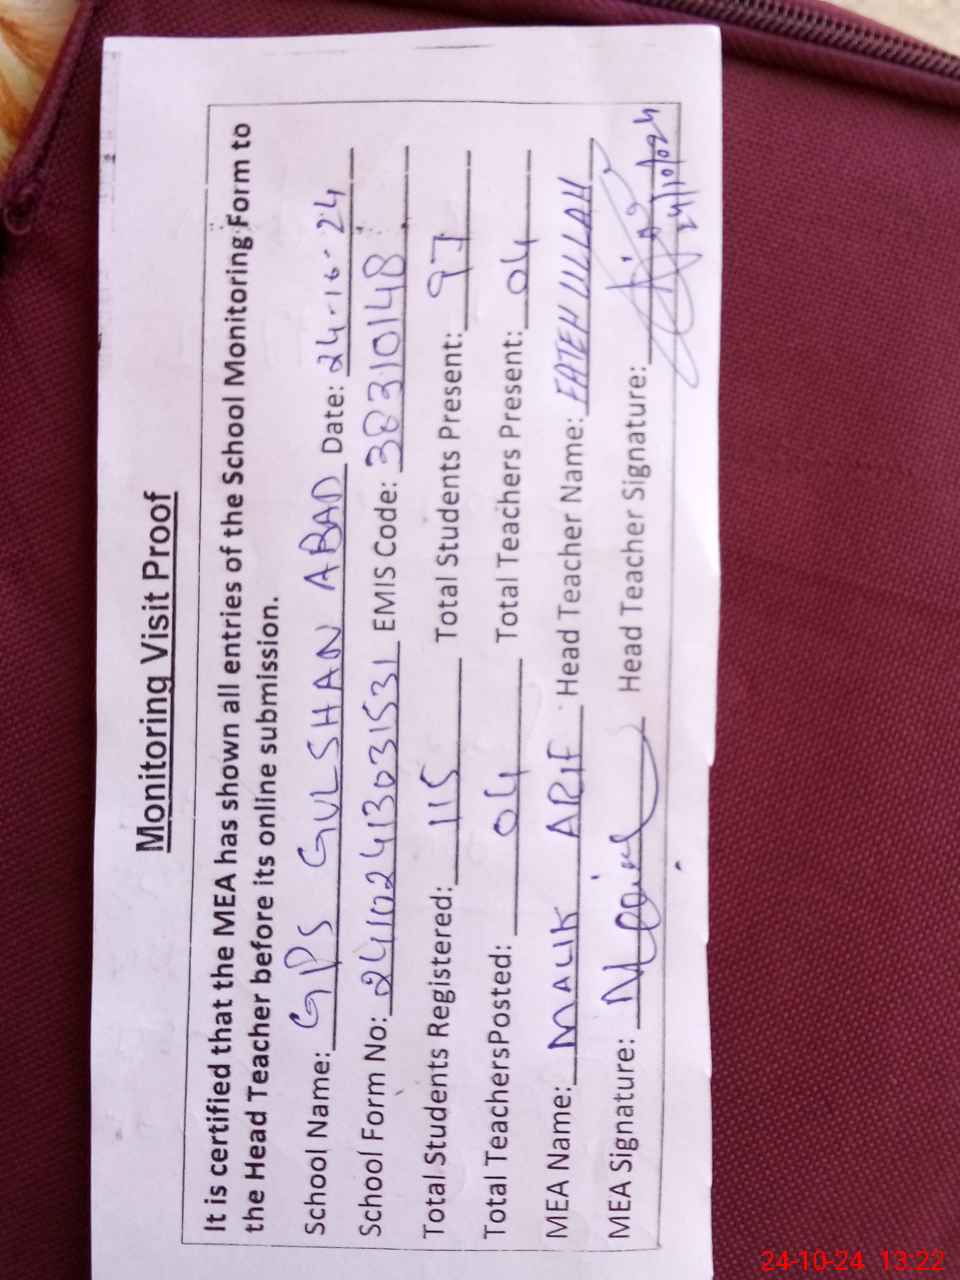 Monitoring Visit Proof
It is certified that the MEA has shown all entries of the School Monitoring Form to
the Head Teacher before its online submission.
School Name: GPS GULSHAN ABAD Date: 24-10-24
School Form No: 24102413031531 EMIS Code: 38310148
Total Students Registered: 115 Total Students Present: 97
Total TeachersPosted: 04 Total Teachers Present: 04
MEA Name: MALIK ARIF Head Teacher Name: FATEH ULLAH
MEA Signature: Head Teacher Signature:
24/10/024
24-10-24 13:22